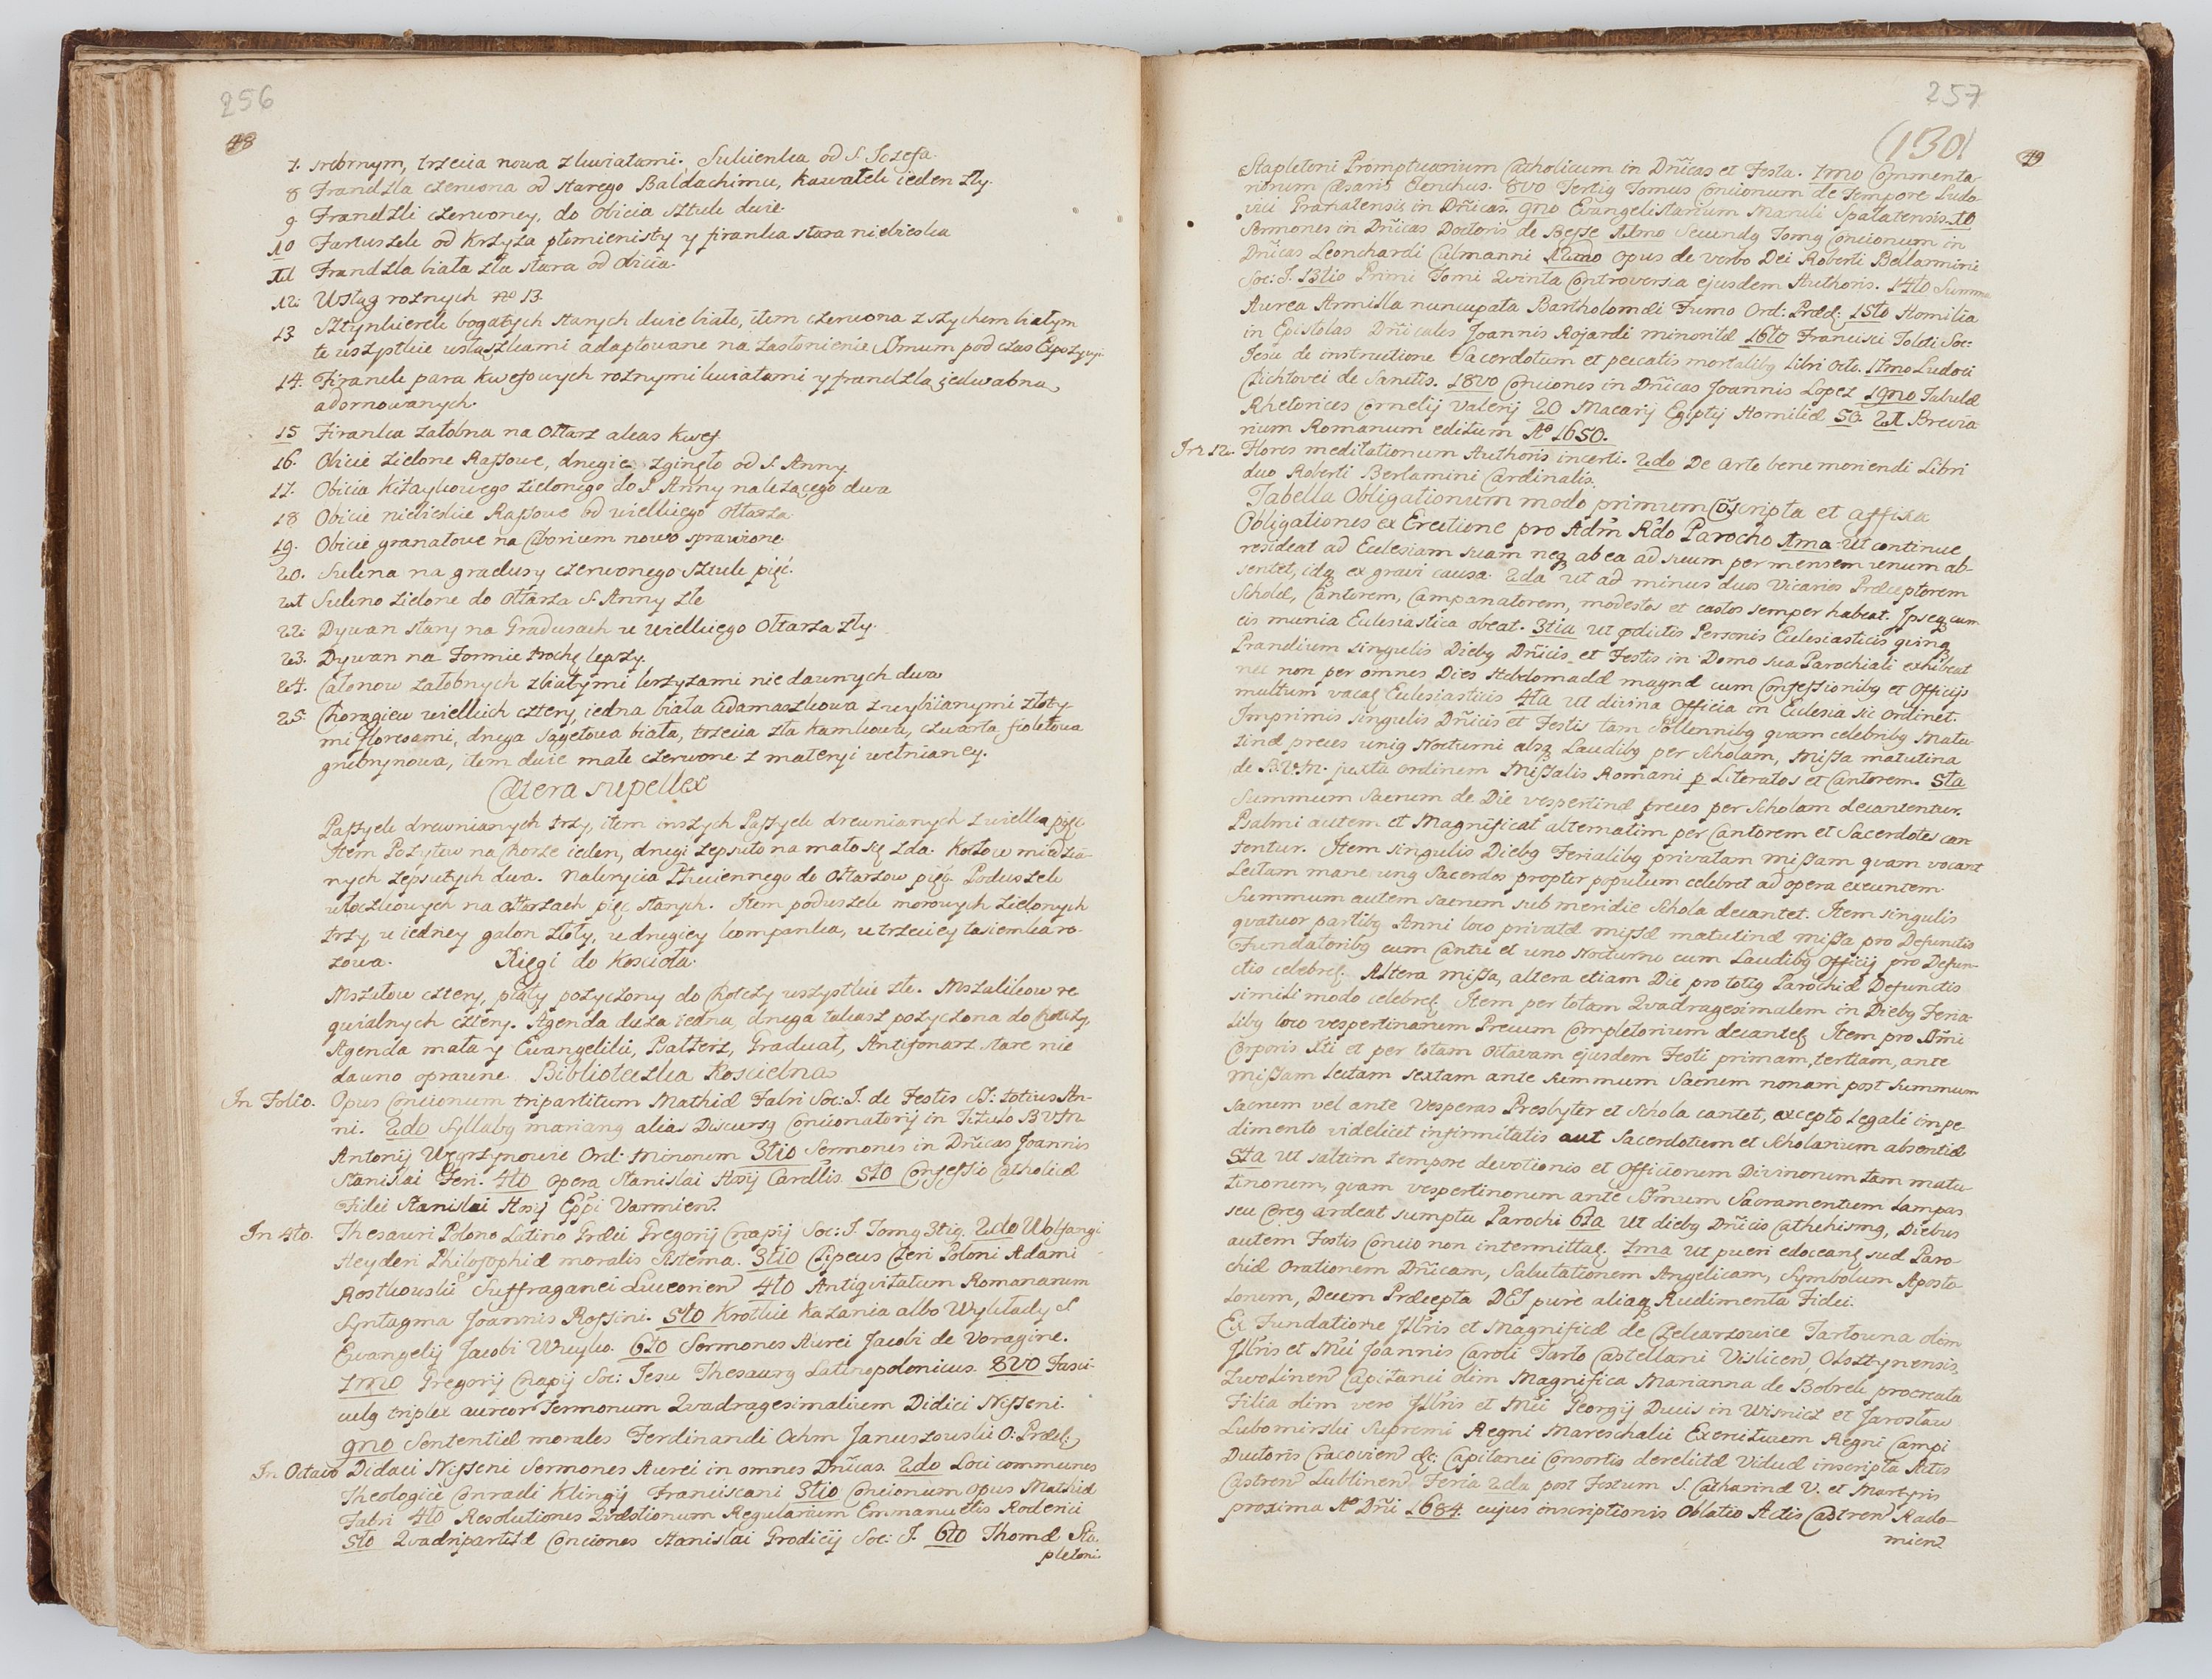 256
48
7. srebrnym, trzecia nowa z kwiatami. Sukienka od S. Jozefa.
8 Frandzla czerwona od starego Baldachimu, kawałek ieden zły.
9 Frandzli czerwoney, do obicia sztuk dwie.
10 Fartuszek od krzyża płomienisty y firanka stara niebieska
11 Frandzla biała zła stara od obicia.
12. Wstąg roznych No 13.
13 Sztynkierek bogatych starych dwie białe, item czerwona z szychem białym
te wszystkie wstąszkami adaptowane na zasłonienie SSmum pod czas Expozycyi.
14. Firanek para kwefowych roznymi kwiatami y frandzlą jedwabną
adornowanych.
15 Firanka załobna na Ołtarz alias kwef
16. Obicie zielone Raſsowe, drugie zginęło od S. Anny
17. Obicia kitaykowego zielonego do S Anny nalezącego dwa
18 Obicie niebieskie Raſsowe od wielkiego ołtarza
19. Obicie granatowe na Ciborium nowo sprawione
20. Sukna na gradusy czerwonego sztuk pięć.
21 Sukno zielone do Ołtarza S. Anny złe
22. Dywan stary na Gradusach u wielkiego Ołtarza zły.
23. Dywan na Formie trochę lepszy.
24. Całonow załobnych z białymi krzyzami nie dawnych dwa
25. Chorągiew wielkich cztery, iedna biała Adamaszkowa z wybiianymi złoty
mi floresami, druga Sagetowa biała, trzecia zła kamkowa, czwarta fioletowa
grubrynowa, item dwie małe czerwone z materyi wełnianey.
Cætera supellex
Paſsyek drewnianych trzy, item inszych Paſsyek drewnianych z wielka pięć
Item Pozytyw na Chorze ieden, drugi zepsuto na mało się zda. Kotłow miedzia-
nych zepsutych dwa. Nakrycia Płuciennego do Ołtarzow pięć Poduszek
włoczkowych na ołtarzach pięć starych. Item poduszek morowych zielonych
trzy, u iedney galon złoty, u drugiey kompanka, u trzeciey tasiemka ro-
zowa. Xięgi do Koscioła.
Mszałow cztery, piąty pozyczony do Chotczy wszystkie złe. Mszalikow re
quialnych cztery. Agenda duza iedna, druga takasz pozyczona do Chotczy,
Agenda mała y Ewangeliki, Psałterz, Graduał, Antyfonarz stare nie
dawno oprawne. Biblioteczka Koscielna
In Folio. Opus Concionum tripartitum Mathiæ Fabri Soc: J. de Festis SS: totius An-
ni. 2do Syllabg mariang alias Discursg Concionatorij in Titulo BVM
Antonij Węgrzynowic Ord: Minorum 3tio Sermones in Dn̄icas Joannis
Stanislai Feri. 4to Opera Stanislai Hosij Cardlis. 5to Confeſsio Catholicæ
Fidei Stanislai Hosij Ep̄pi Varmien̄.
In 4to. Thesauri Polono Latino Græci Gregorij Cnapij Soc: J. Tomg 3tig. 2do Wolfangi
Heyderi Philosophiæ moralis Sistema. 3tio Clipeus Cleri Poloni Adami
Rostkowski Suffraganei Luceorien̄ 4to Antiquitatum Romanarum
Syntagma Joannis Roſsini. 5to Krotkie Kazania albo Wykłady S
Ewangelij Jacobi Wuyko. 6to Sermones Aurei Jacobi de Voragine.
7mo Gregorij Cnapij Soc: Jesu Thesaurg Latinopolonicus. 8vo Fasci-
culg triplex aureor Sermonum Quadragesimalium Didici Niſseni.
9no Sententiæ morales Ferdinandi Ochm Januszowski O: Præd:
In Octavo Didaci Niſseni Sermones Aurei in omnes Dn̄icas. 2do Loci communes
Theologici Conradi Klingij Franciscani 3tio Concionum opus Mathiæ
Fabri 4to Resolutiones Quæstionum Regularium Emmanuelis Roderici
5to Quadripartitæ Conciones Stanislai Grodicij Soc: J. 6to Thomæ Sta-
pletoni
257
(130)
49
Stapletoni Promptuarium Catholicum in Dn̄icas et Festa. 7mo Commenta-
riorum Cæsaris Elenchus. 8vo Tertig Tomus Concionum de Tempore Ludo-
vici Granatensis in Dn̄icas. 9no Evangelistarium Maruli Spalatensis. 10
Sermones in Dn̄icas Doctoris de Beſse 11mo Secundg Tomg Concionum in
Dn̄icas Leonchardi Culmanni 12mo Opus de verbo Dei Roberti Bellarmini
Soc: J. 13tio Primi Tomi Quinta Controversia ejusdem Authoris. 14to Summa
Aurea Armilla nuncupata Bartholomæi Fumo Ord: Præd: 15to Homilia
in Epistolas Dn̄icales Joannis Rojardi minoritæ 16to Francisci Toleti Soc:
Jesu de instructione Sacerdotum et peccatis mortalibg Libri Octo. 17mo Ludoci
Clichtovei de Sanctis. 18vo Conciones in Dn̄icas Joannis Lopez 19no Tabulæ
Rhetorices Cornelij Valerij 20 Macarij Egiptij Homiliæ 50. 21 Brevia-
rium Romanum editum Ao 1650.
In 12. Flores meditationum Authoris incerti. 2do De Arte bene moriendi Libri
duo Roberti Berlamini Cardinalis.
Tabella Obligationum modo primum Conscripta et affixa
Obligationes ex Erectione pro Adm̄ Rdo Parocho 1ma Ut continue
resideat ad Ecclesiam suam neq ab ea ad suum per mensem unum ab-
sentet, idq ex gravi causa. 2da ut ad minus duos Vicarios Præceptorem
Scholæ, Cantorem, Campanatorem, modestos et castos semper habeat. Ipseq cum
eis munia Ecclesiastica obeat. 3tia ut p̄dictis Personis Ecclesiasticis quinq
Prandium singulis Diebg Dn̄icis et Festis in Domo sua Parochiali exhibeat
nec non per omnes Dies Hebdomadæ magnæ cum Confeſsionibg et Officijs
multum vacaſ Ecclesiasticis 4ta Ut divina Officia in Eclesia sic ordinet.
Imprimis singulis Dn̄icis et Festis tam Sollennibg quam celebribg Matu-
tinæ preces unig Nocturni absq Laudibg per Scholam, Miſsa matutina
de B.V.M. juxta ordinem Miſsalis Romani p Literatos et Cantorem. 5ta
Summum Sacrum de Die vespertinæ preces per Scholam decantentur.
Psalmi autem et Magnificat alternatim per Cantorem et Sacerdotes can
tentur. Item singulis Diebg Ferialibg privatam miſsam quam vocant
Lectam mane ung Sacerdos propter populum celebret ad opera exeuntem.
Summum autem Sacrum sub meridie Schola decantet. Item singulis
quatuor partibg Anni loco privatæ miſsæ matutinæ Miſsa pro Defunctis
Fundatoribg cum Cantu et uno Nocturno cum Laudibg Officij pro Defun-
ctis celebreſ. Altera miſsa, altera etiam Die pro totig Parochiæ Defunctis
simili modo celebreſ. Item per totam Quadragesimalem in Diebg Feria-
libg loco vespertinarum Precum Completorium decanteſ Item pro SSmi
Corporis Xti et per totam Octavam ejusdem Festi primam, tertiam, ante
Miſsam lectam sextam ante Summum Sacrum nonam post Summum
Sacrum vel ante Vesperas Presbyter et Schola cantet, excepto Legali impe-
dimento videlicet infirmitatis aut Sacerdotum et Scholarium absentiæ
5ta Ut saltim tempore devotionis et Officiorum Divinorum tam matu-
tinorum, quam vespertinorum ante SSmum Sacramentum Lampas
seu Cereg ardeat sumptu Parochi 6ta Ut diebg Dn̄icis Cathehismg, Diebus
autem Festis Concio non intermittaſ. 7ma Ut pueri edoceanſ suæ Paro-
chiæ Orationem Dn̄icam, Salutationem Angelicam, Symbolum Aposto-
lorum, Decem Præcepta DEI purè aliaq Rudimenta Fidei.
Ex Fundatione Jll̄ris et Magnificæ de Czekarzowice Tarłowna olim
Jll̄ris et M̄ci Joannis Caroli Tarło Castellani Vislicen̄ Olsztynensis,
Zwolinen̄ Capitanei olim Magnifica Marianna de Bobrek procreata
Filia olim vero Jll̄ris et M̄ci Georgij Ducis in Wisnicz et Jarosław
Lubomirski Supremi Regni Mareschalci Exercituum Regni Campi
Ductoris Cracovien̄ &c: Capitanei Consortis derelictæ Viduæ inscripta Actis
Castren̄ Lublinen̄ Feria 2da post Festum S. Catharinæ V. et Martyris
proxima Ao Dn̄i 1684. cujus inscriptionis Oblatio Actis Castren̄ Rado-
mien̄